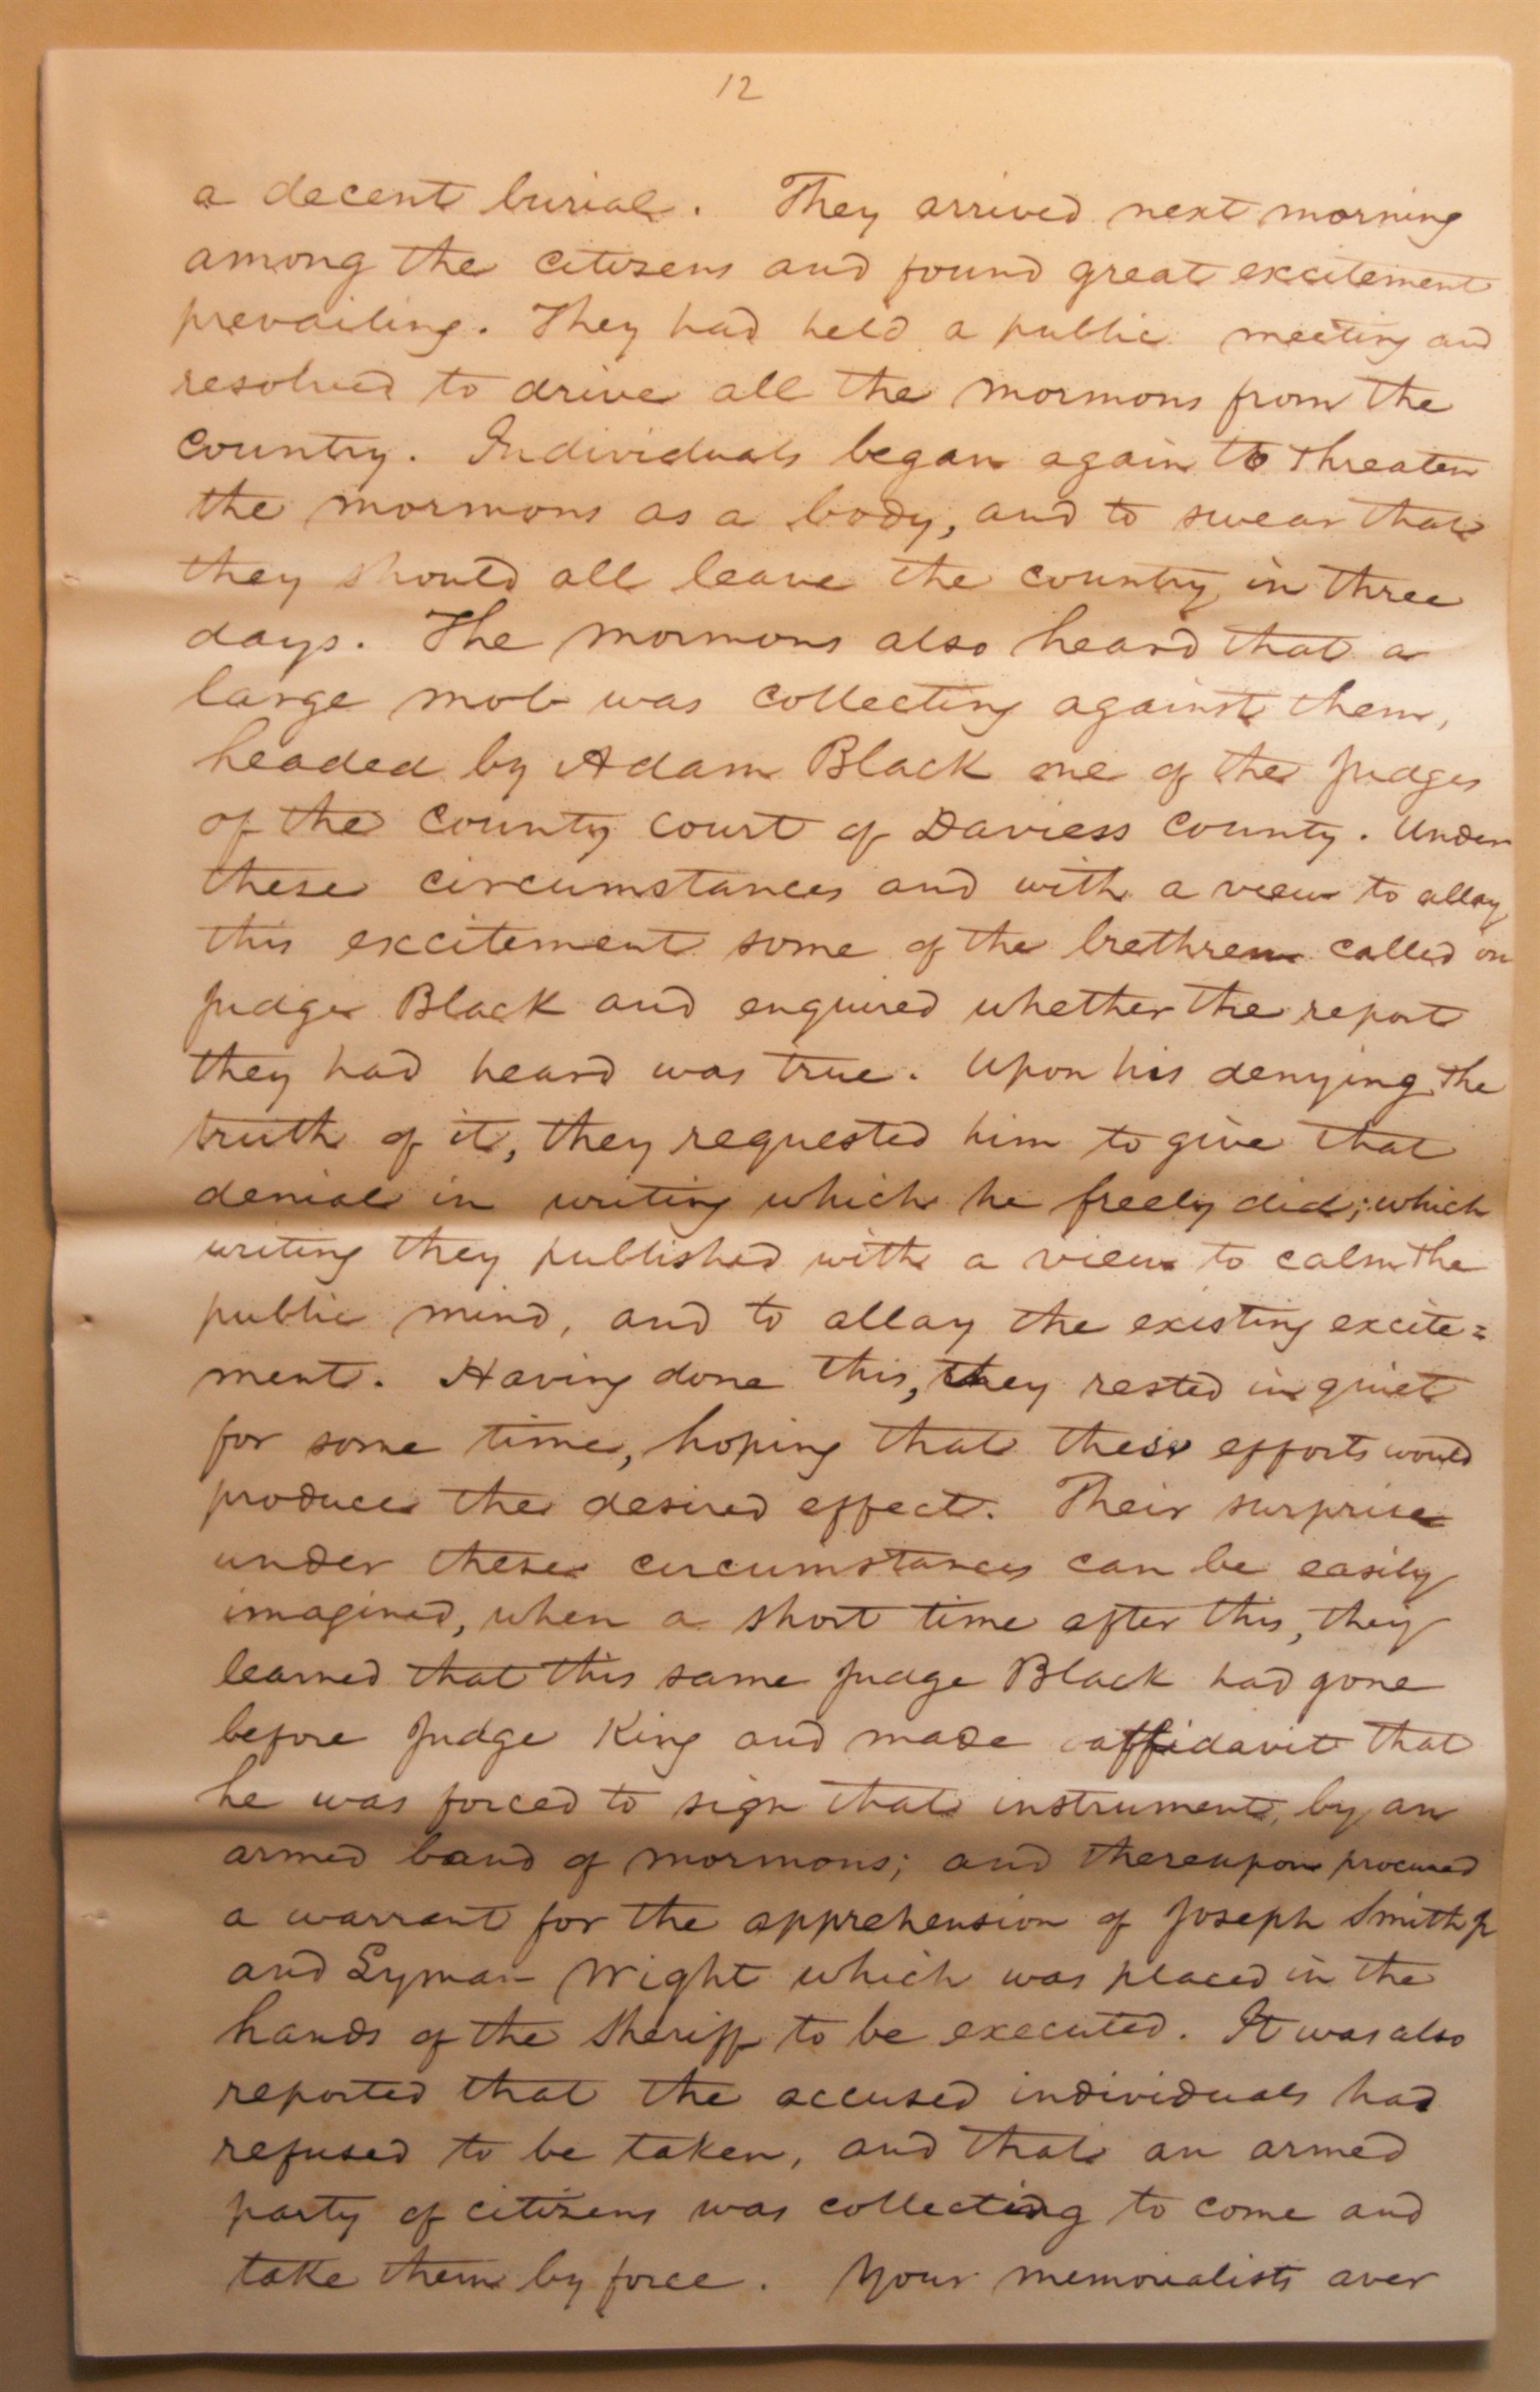 12
a decent burial. They arrived next morning
among the citizens and found great excitement
prevailing. They had held a public meeting and
resolved to drive all the mormons from the
country. Individuals began again to threaten
the mormons as a body, and to swear that
they should all leave the country in three
days. The mormons also heard that a
large mob was collecting against them,
headed by Adam Black one of the Judges
of the county court of Daviess county. Under
these circumstances and with a view to allay
this excitement some of the brethren called on
Judge Black and enquired whether the report
they had heard was true. Upon his denying the
truth of it, they requested him to give that
denial in writing which he freely did; which
writing they published with a view to calm the
public mind, and to allay the existing excite=
ment. Having done this, they rested in quiet
for some time, hoping that their efforts would
produce the desired effect. Their surprise
under these circumstances can be easily
imagined, when a short time after this, they
learned that this same Judge Black had gone
before Judge King and made affidavit that
he was forced to sign that instrument, by an
armed band of mormons; and thereupon procured
a warrant for the apprehension of Joseph Smith Jr
and Lyman Wright which was placed in the
hands of the Sheriff to be executed. It was also
reported that the accused individuals had
refused to be taken, and that an armed
party of citizens was collecting to come and
take them by force. Your memorialists aver